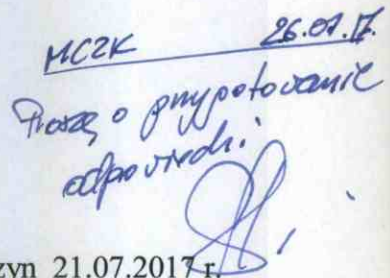 MCZK 26.07.17.
Proszę o przygotowanie
odpowiedzi.
zyn 21.07.2017 r.